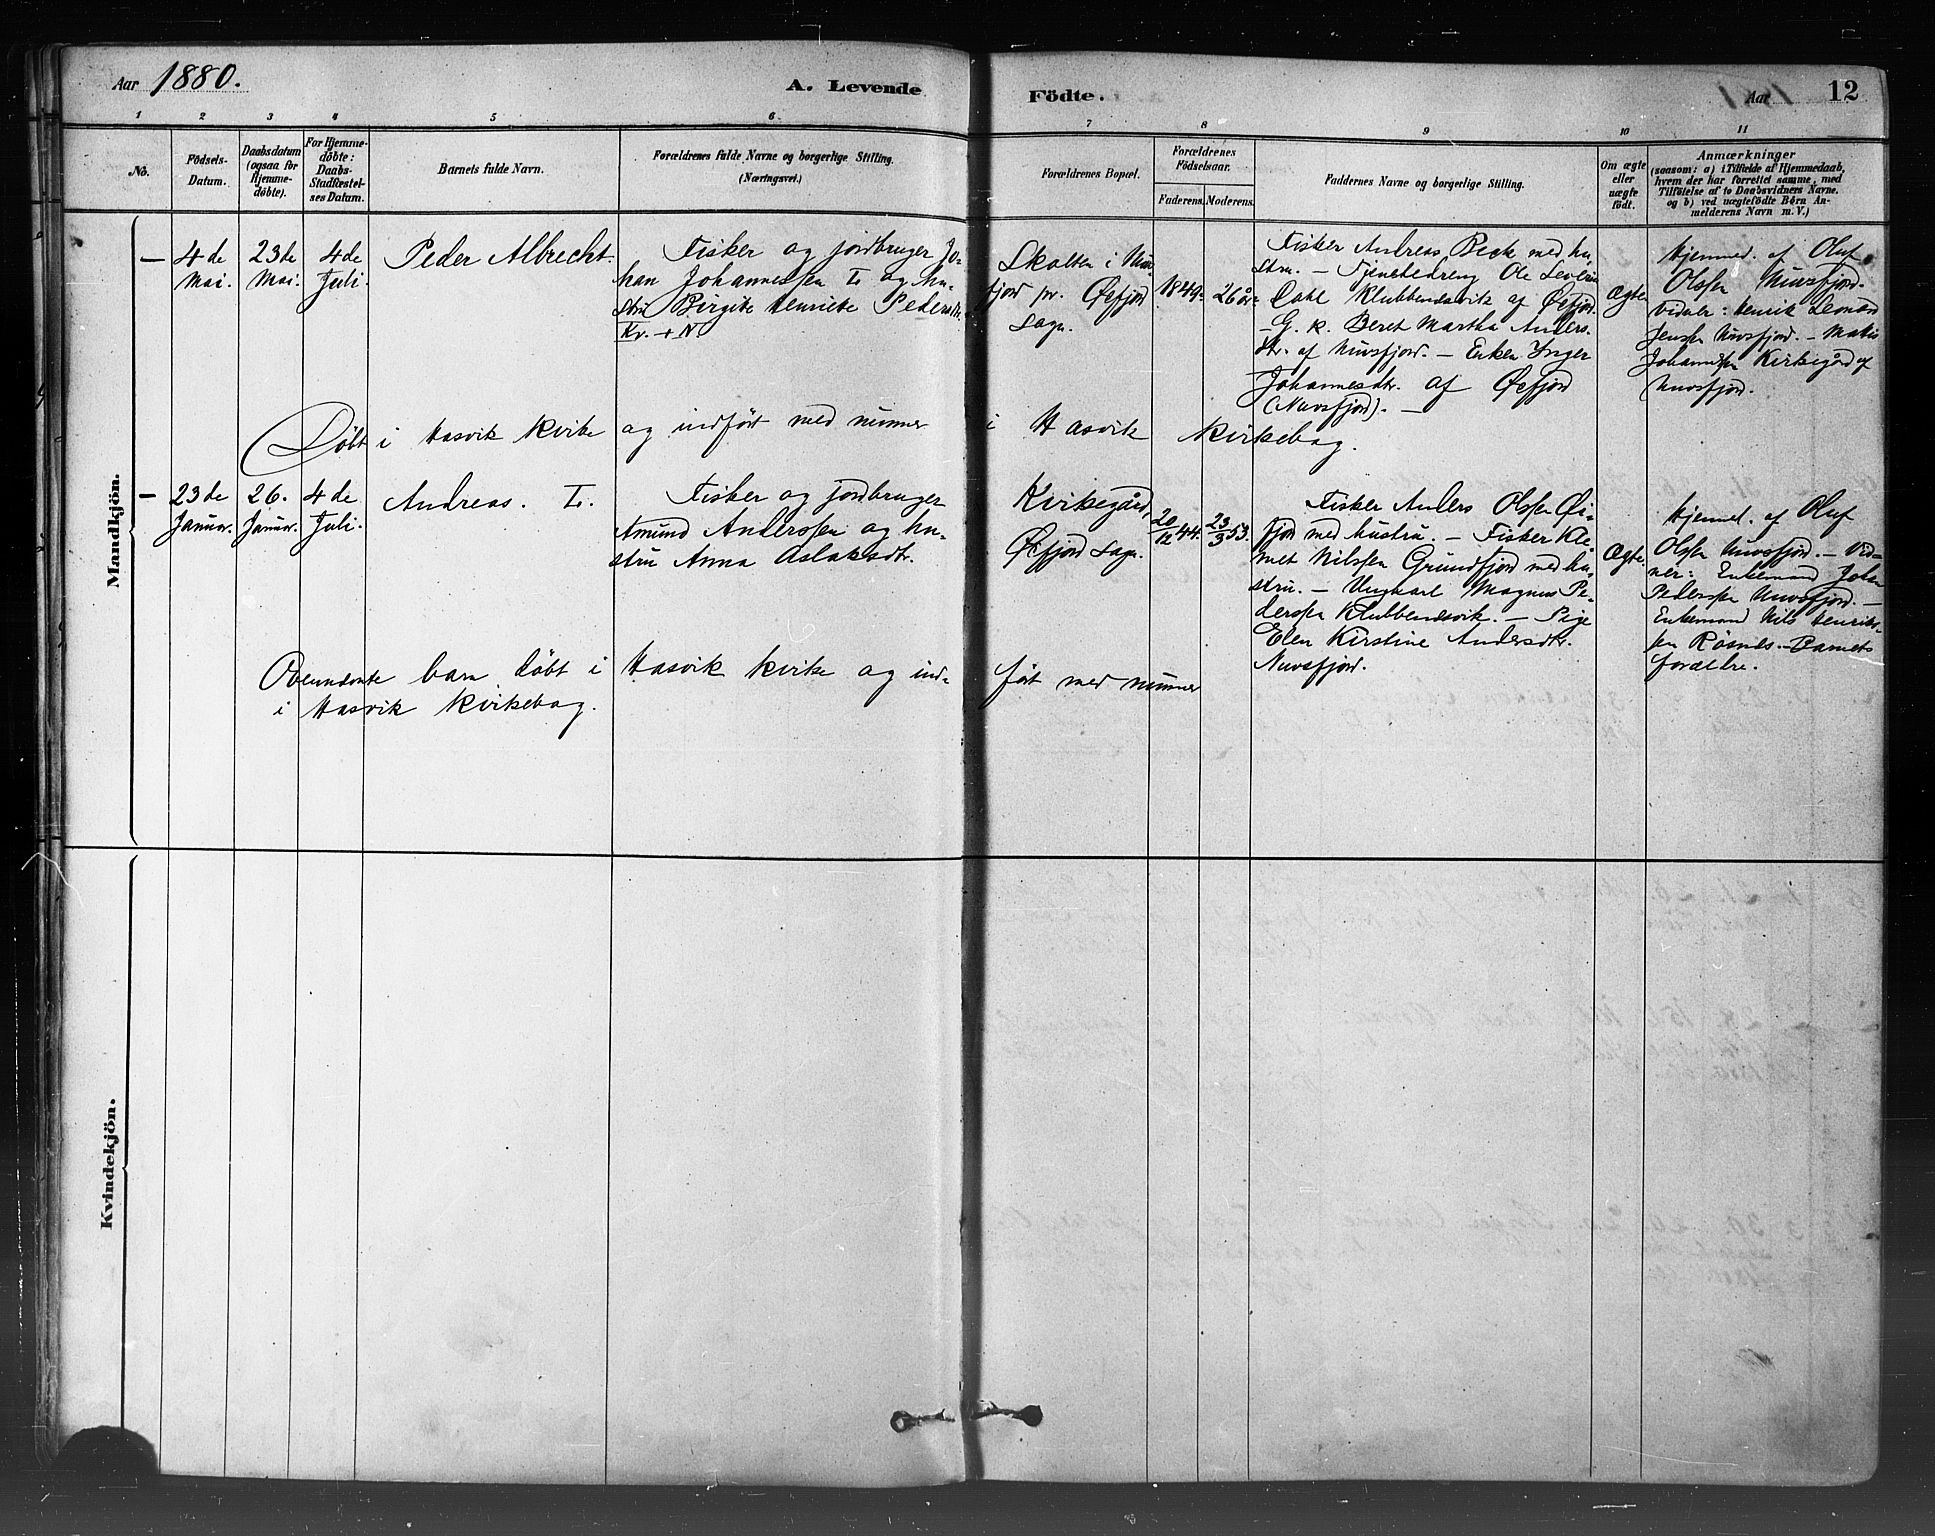 Aar 1880.
A. Levende
Födte.
Aar
12
1
2
3
4
5
6
7
8
9
10
11
No.
Födsels-
Datum.
Daabsdatum
(ogsaa for
Hjemme-
döbte).
For Hjemme-
döbte:
Daabs-
Stadfæstel-
ses Datum.
Barnets fulde Navn.
Forældrenes fulde Navne og borgerlige Stilling.
(Næringsvei.)
Forældrenes Bopæl.
Forældrenes
Födselsaar.
Faderens.
Moderens.
Faddernes Navne og borgerlige Stilling.
Om ægte
eller
uægte
födt.
Anmærkninger
(saasom: a) i Tilfælde af Hjemmedaab,
hvem der har forrettet samme, med
Tilföielse af to Daabsvidners Navne.
og b) ved uægtefödte Börn An-
melderens Navn m. V.)
Mandkjön.
— 4de
Mai.
23de
Mai.
4de
Juli.
Peder Albrecht.
Fisker og jordbruger Jo-
han Johannessen L. og hu-
stru Birgite Henriette Pedersdtr.
Kv. + N.
Skolten i Nu-
fjord pr. Øxfjord
sogn.
1849.
26 år.
Fisker Andreas Beck med hu-
stru. — Tjenestedreng Ole Severin
Dahl Klubbenesvik af Øxfjord.
— G. k. Beret Martha Anders-
dtr. af Nuvsfjord. — Enken Inger
Johannesdtr. af Øxfjord
(Nuvsfjord). —
Ægte
Hjemmed. af Oluf
Olssen Nuvsfjord.
Vidner: Henrik Leonard
Jenssen Nuvsfjord. — Mathis
Johannessen Kirkegård af
Nuvsfjord.
Döbt i Hasvik kirke og indfört med nummer i Hasvik kirkebog.
— 23de
Januar.
26.
Januar.
4de
Juli.
Andreas. L.
Fisker og jordbruger
Amund Anderssen og hu-
stru Anna Aslaksdtr.
Kirkegård,
Øxfjord sogn.
20/12 44.
23/3 53.
Fisker Anders Olssen Øx-
fjord med hustru. — Fisker Kle-
met Nilssen Grundfjord med hu-
stru. — Ungkarl Magnus Pe-
derssen Klubbenesvik. — Pige
Elen Kirstine Andersdtr.
Nuvsfjord.
Ægte.
Hjemmed. af Oluf
Olssen Nuvsfjord. — Vid-
ner: Enkemand Johan
Pederssen Nuvsfjord. —
Enkemand Nils Henriks-
sen Rösnes. — Barnets
forældre.
Ovennævnte barn döbt i Hasvik kirke og ind- fört med nummer
i Hasvik kirkebog.
Kvindekjön.